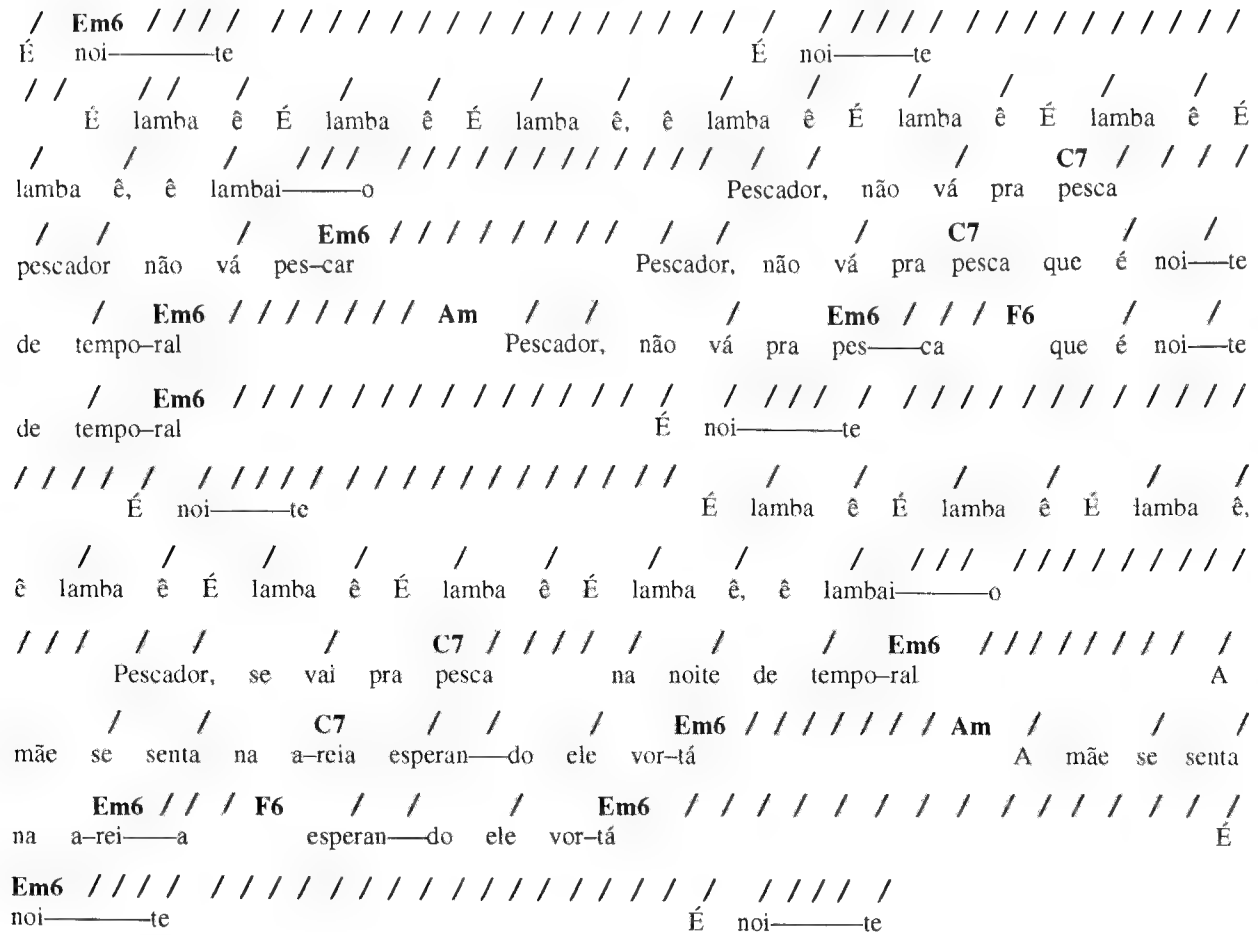 / Em6 / / / / / / / / / / / / / / / / / / / / / / / / / / / / / / / / / / / / /
É noi———te É noi———te
/ / / / / / / / / / / / / / /
É lamba ê É lamba ê É lamba ê, ê lamba ê É lamba ê É lamba ê É
/ / / / / / / / / / / / / / / / / / / / / C7 / / / /
lamba ê, ê lambai———o Pescador, não vá pra pesca
/ / / Em6 / / / / / / / / / / / C7 / /
pescador não vá pes–car Pescador, não vá pra pesca que é noi—te
/ Em6 / / / / / / / Am / / / Em6 / / / F6 / /
de tempo–ral Pescador, não vá pra pes—ca que é noi—te
/ Em6 / / / / / / / / / / / / / / / / / / / / / / / / / / / / / / / / /
de tempo–ral É noi———te
/ / / / / / / / / / / / / / / / / / / / / / / / / / / / /
É noi———te É lamba ê É lamba ê É lamba ê,
/ / / / / / / / / / / / / / / / / / / / /
ê lamba ê É lamba ê É lamba ê É lamba ê, ê lambai———o
/ / / / / / C7 / / / / / / / / Em6 / / / / / / / / /
Pescador, se vai pra pesca na noite de tempo–ral A
/ / C7 / / / Em6 / / / / / / / Am / / /
mãe se senta na a–reia esperan—do ele vor–tá A mãe se senta
Em6 / / / F6 / / / Em6 / / / / / / / / / / / / / / /
na a–rei—a esperan—do ele vor–tá É
Em6 / / / / / / / / / / / / / / / / / / / / / / / / / / /
noi———te É noi———te